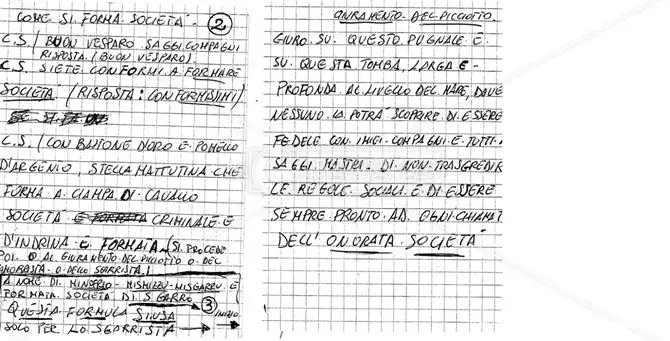 COME SI FORMA SOCIETÀ - ②
C.S. / BUON VESPARO SAGGI COMPAGNI
RISPOSTA (BUON VESPARO)
C.S. SIETE CONFORMI A FORMARE
SOCIETÀ (RISPOSTA: CONFORMISSIMI)
C.S. / CON BASTONE D'ORO E POMELLO
D'ARGENTO, STELLA MATTUTINA CHE
FORMA A CIAMPA DI CAVALLO
SOCIETÀ E FORMATA CRIMINALE E
D'INDRINA E FORMATA (SI PROCEDE
POI O AL GIURAMENTO DEL PICCIOTTO O DEL
CAMORRISTA O DELLO SGARRISTA)
A NOME DI MINOFRIO - MISMIZZU - MISGARRU E
FORMATA SOCIETÀ DI SGARRO
③
QUESTA FORMULA SI USA INIZIO
SOLO PER LO SGARRISTA
GIURAMENTO DEL PICCIOTTO
GIURO SU QUESTO PUGNALE E
SU QUESTA TOMBA, LARGA E -
PROFONDA AL LIVELLO DEL MARE, DOVE
NESSUNO LA POTRÀ SCOPRIRE DI ESSERE
FEDELE CON I MIEI COMPAGNI E TUTTI I
SAGGI MASTRI DI NON TRASGREDIR
LE REGOLE SOCIALI E DI ESSERE
SEMPRE PRONTO AD OGNI CHIAMAT
DELL'ONORATA SOCIETÀ